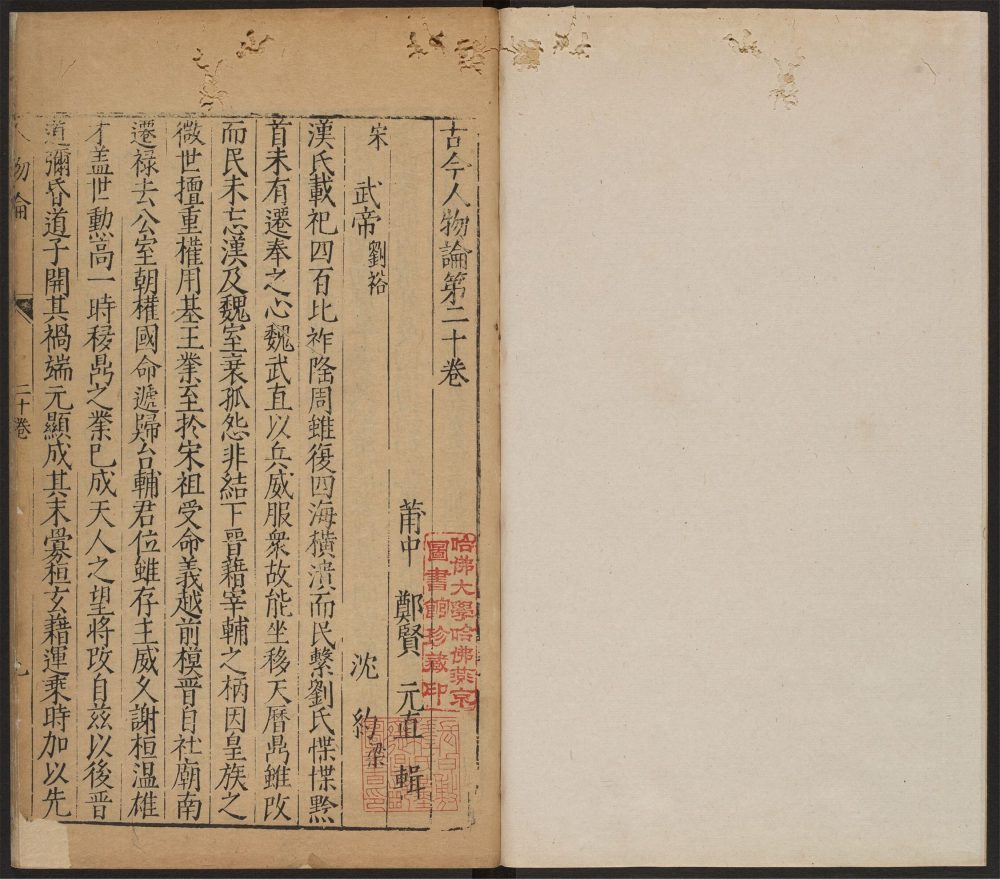 古今人物論第二十卷
莆中 鄭賢 元直 輯
宋
武帝 劉裕 沈約 梁
漢氏載祀四百比祚隆周雖復四海橫潰而民繫劉氏惵惵黔
首未有遷奉之心魏武直以兵威服衆故能坐移天曆鼎雖改
而民未忘漢及魏室衰孤怨非結下晉藉宰輔之柄因皇族之
微世擅重權用基王業至於宋祖受命義越前模晉自社廟南
遷祿去公室朝權國命遞歸台輔君位雖存主威久謝桓溫雄
才蓋世勳高一時移鼎之業已成天人之望將改自兹以後晉
道彌昏道子開其禍端元顯成其末釁桓玄藉運乘時加以先
人物論 二十卷
哈佛大學哈佛燕京
圖書館珍藏印